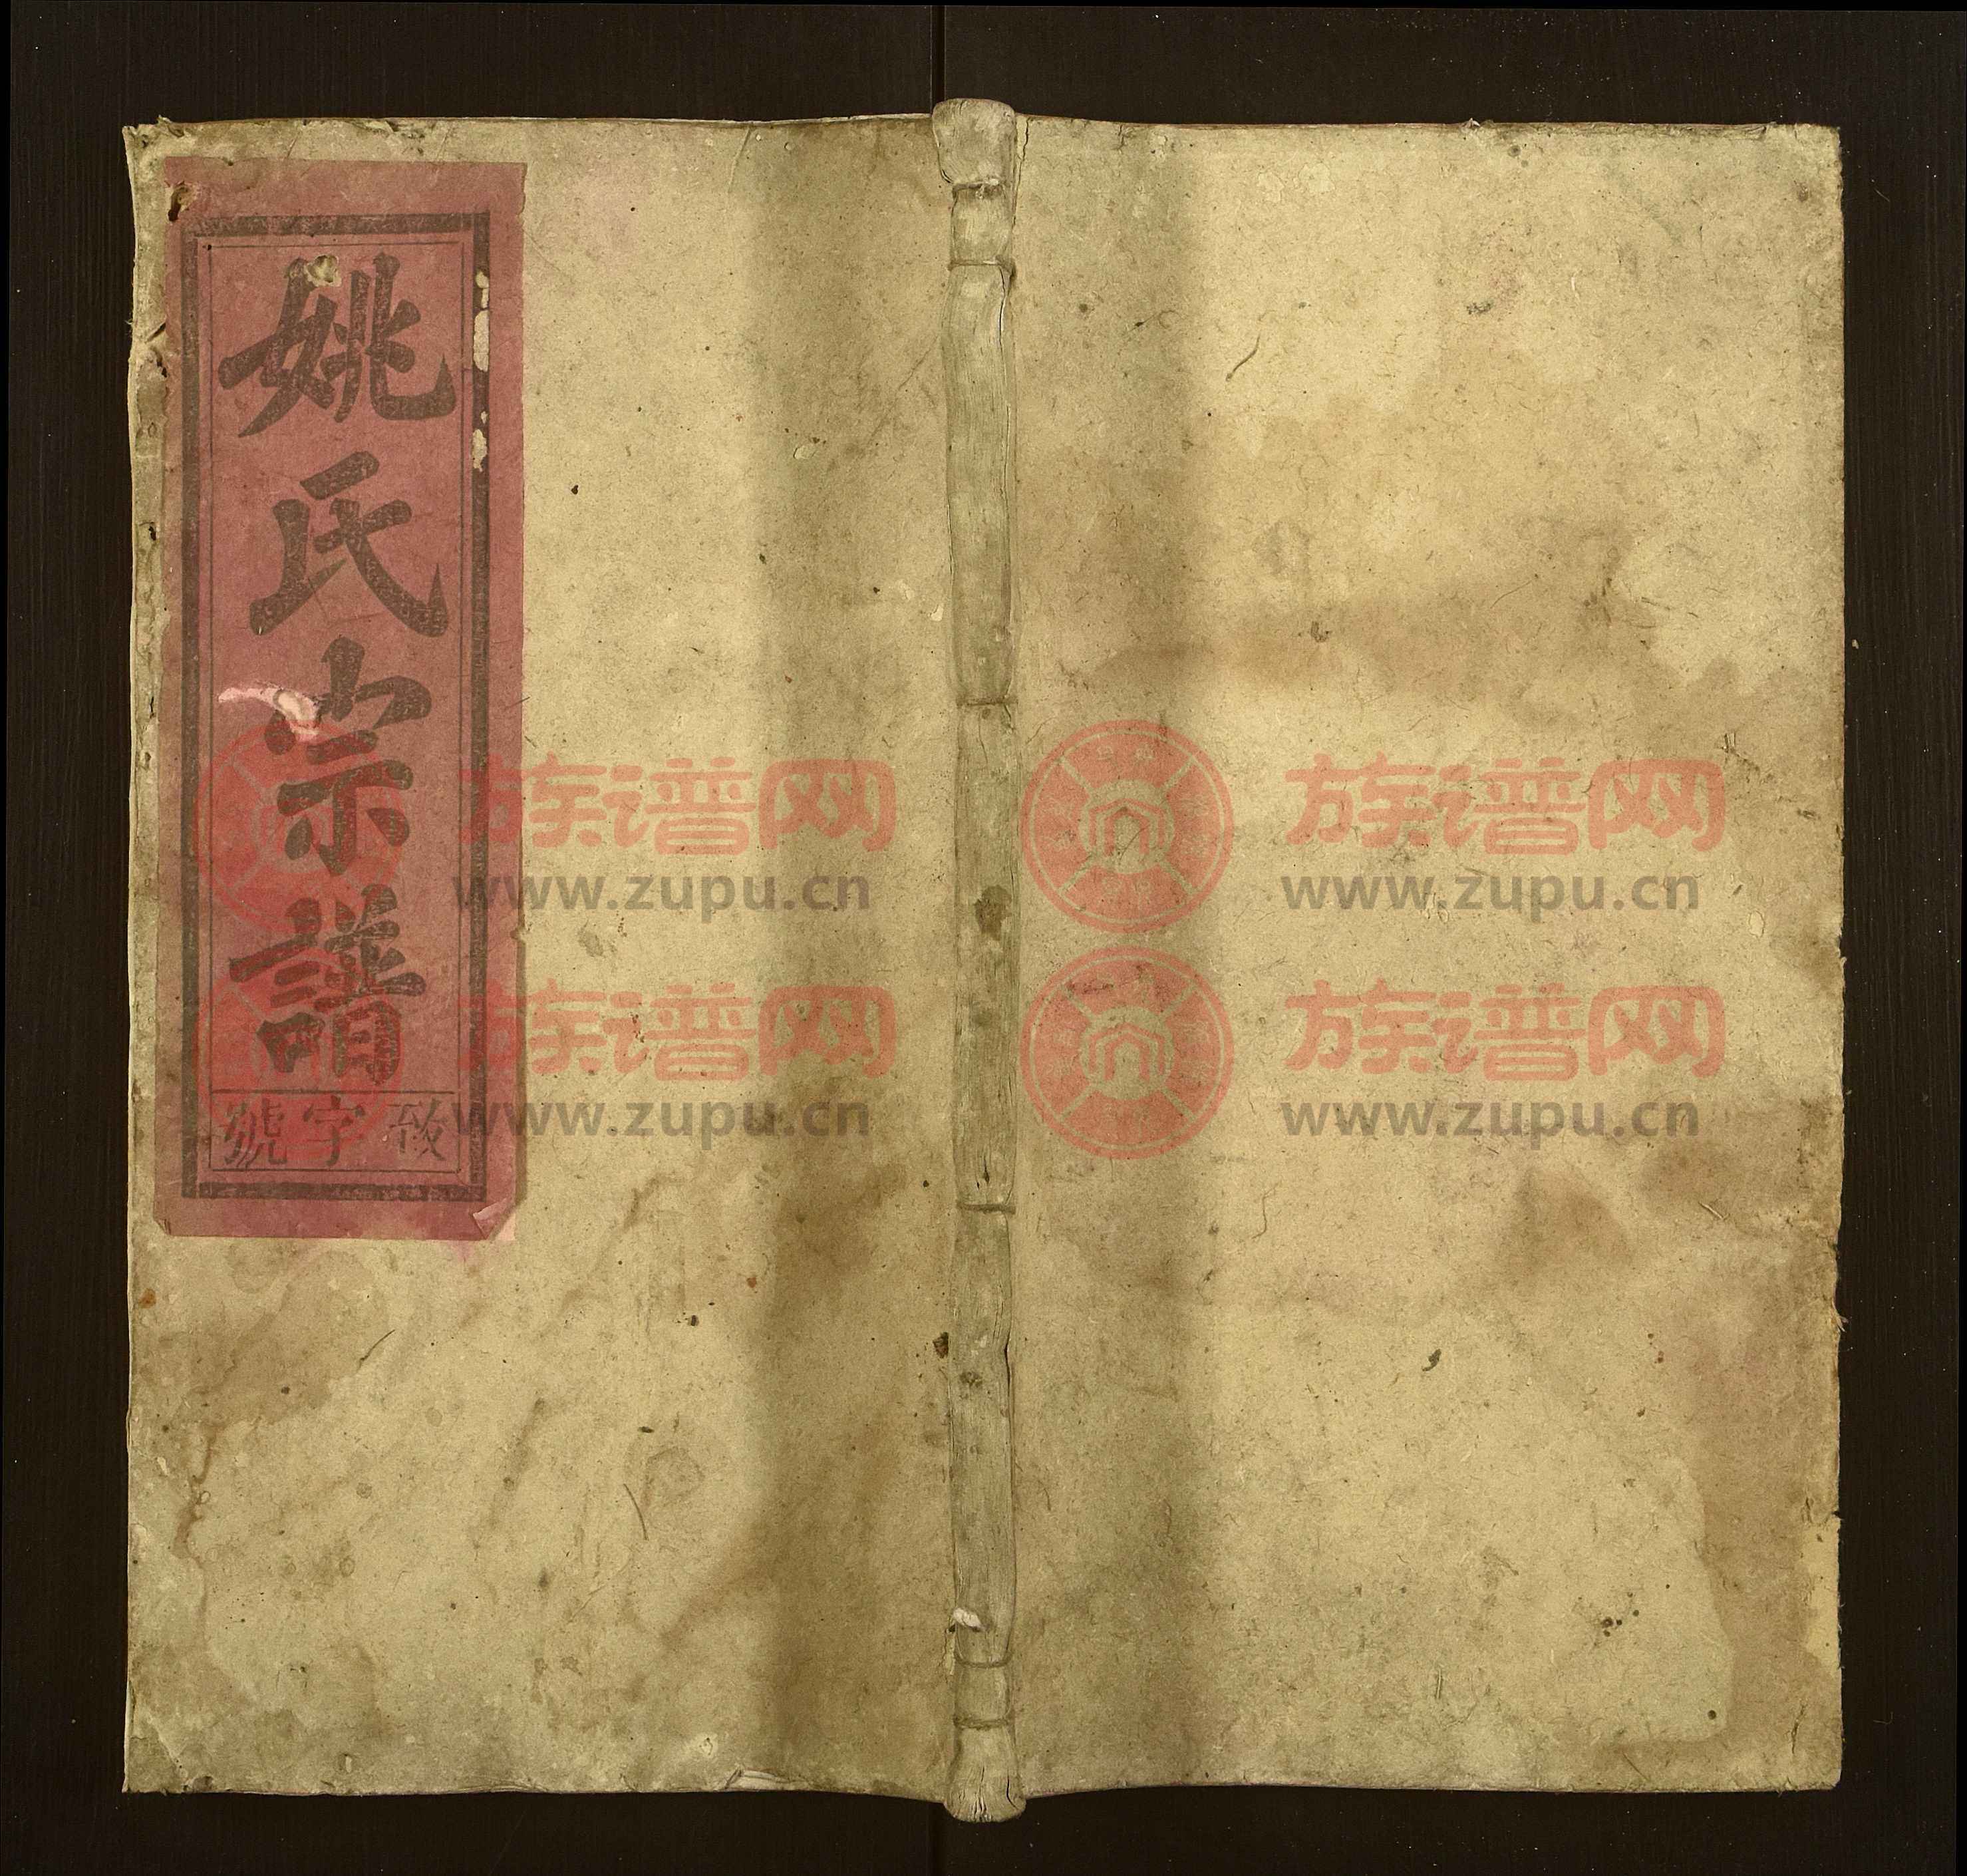 姚氏宗譜
致字號
族谱网 族谱网
www.zupu.cn www.zupu.cn
族谱网 族谱网
www.zupu.cn www.zupu.cn